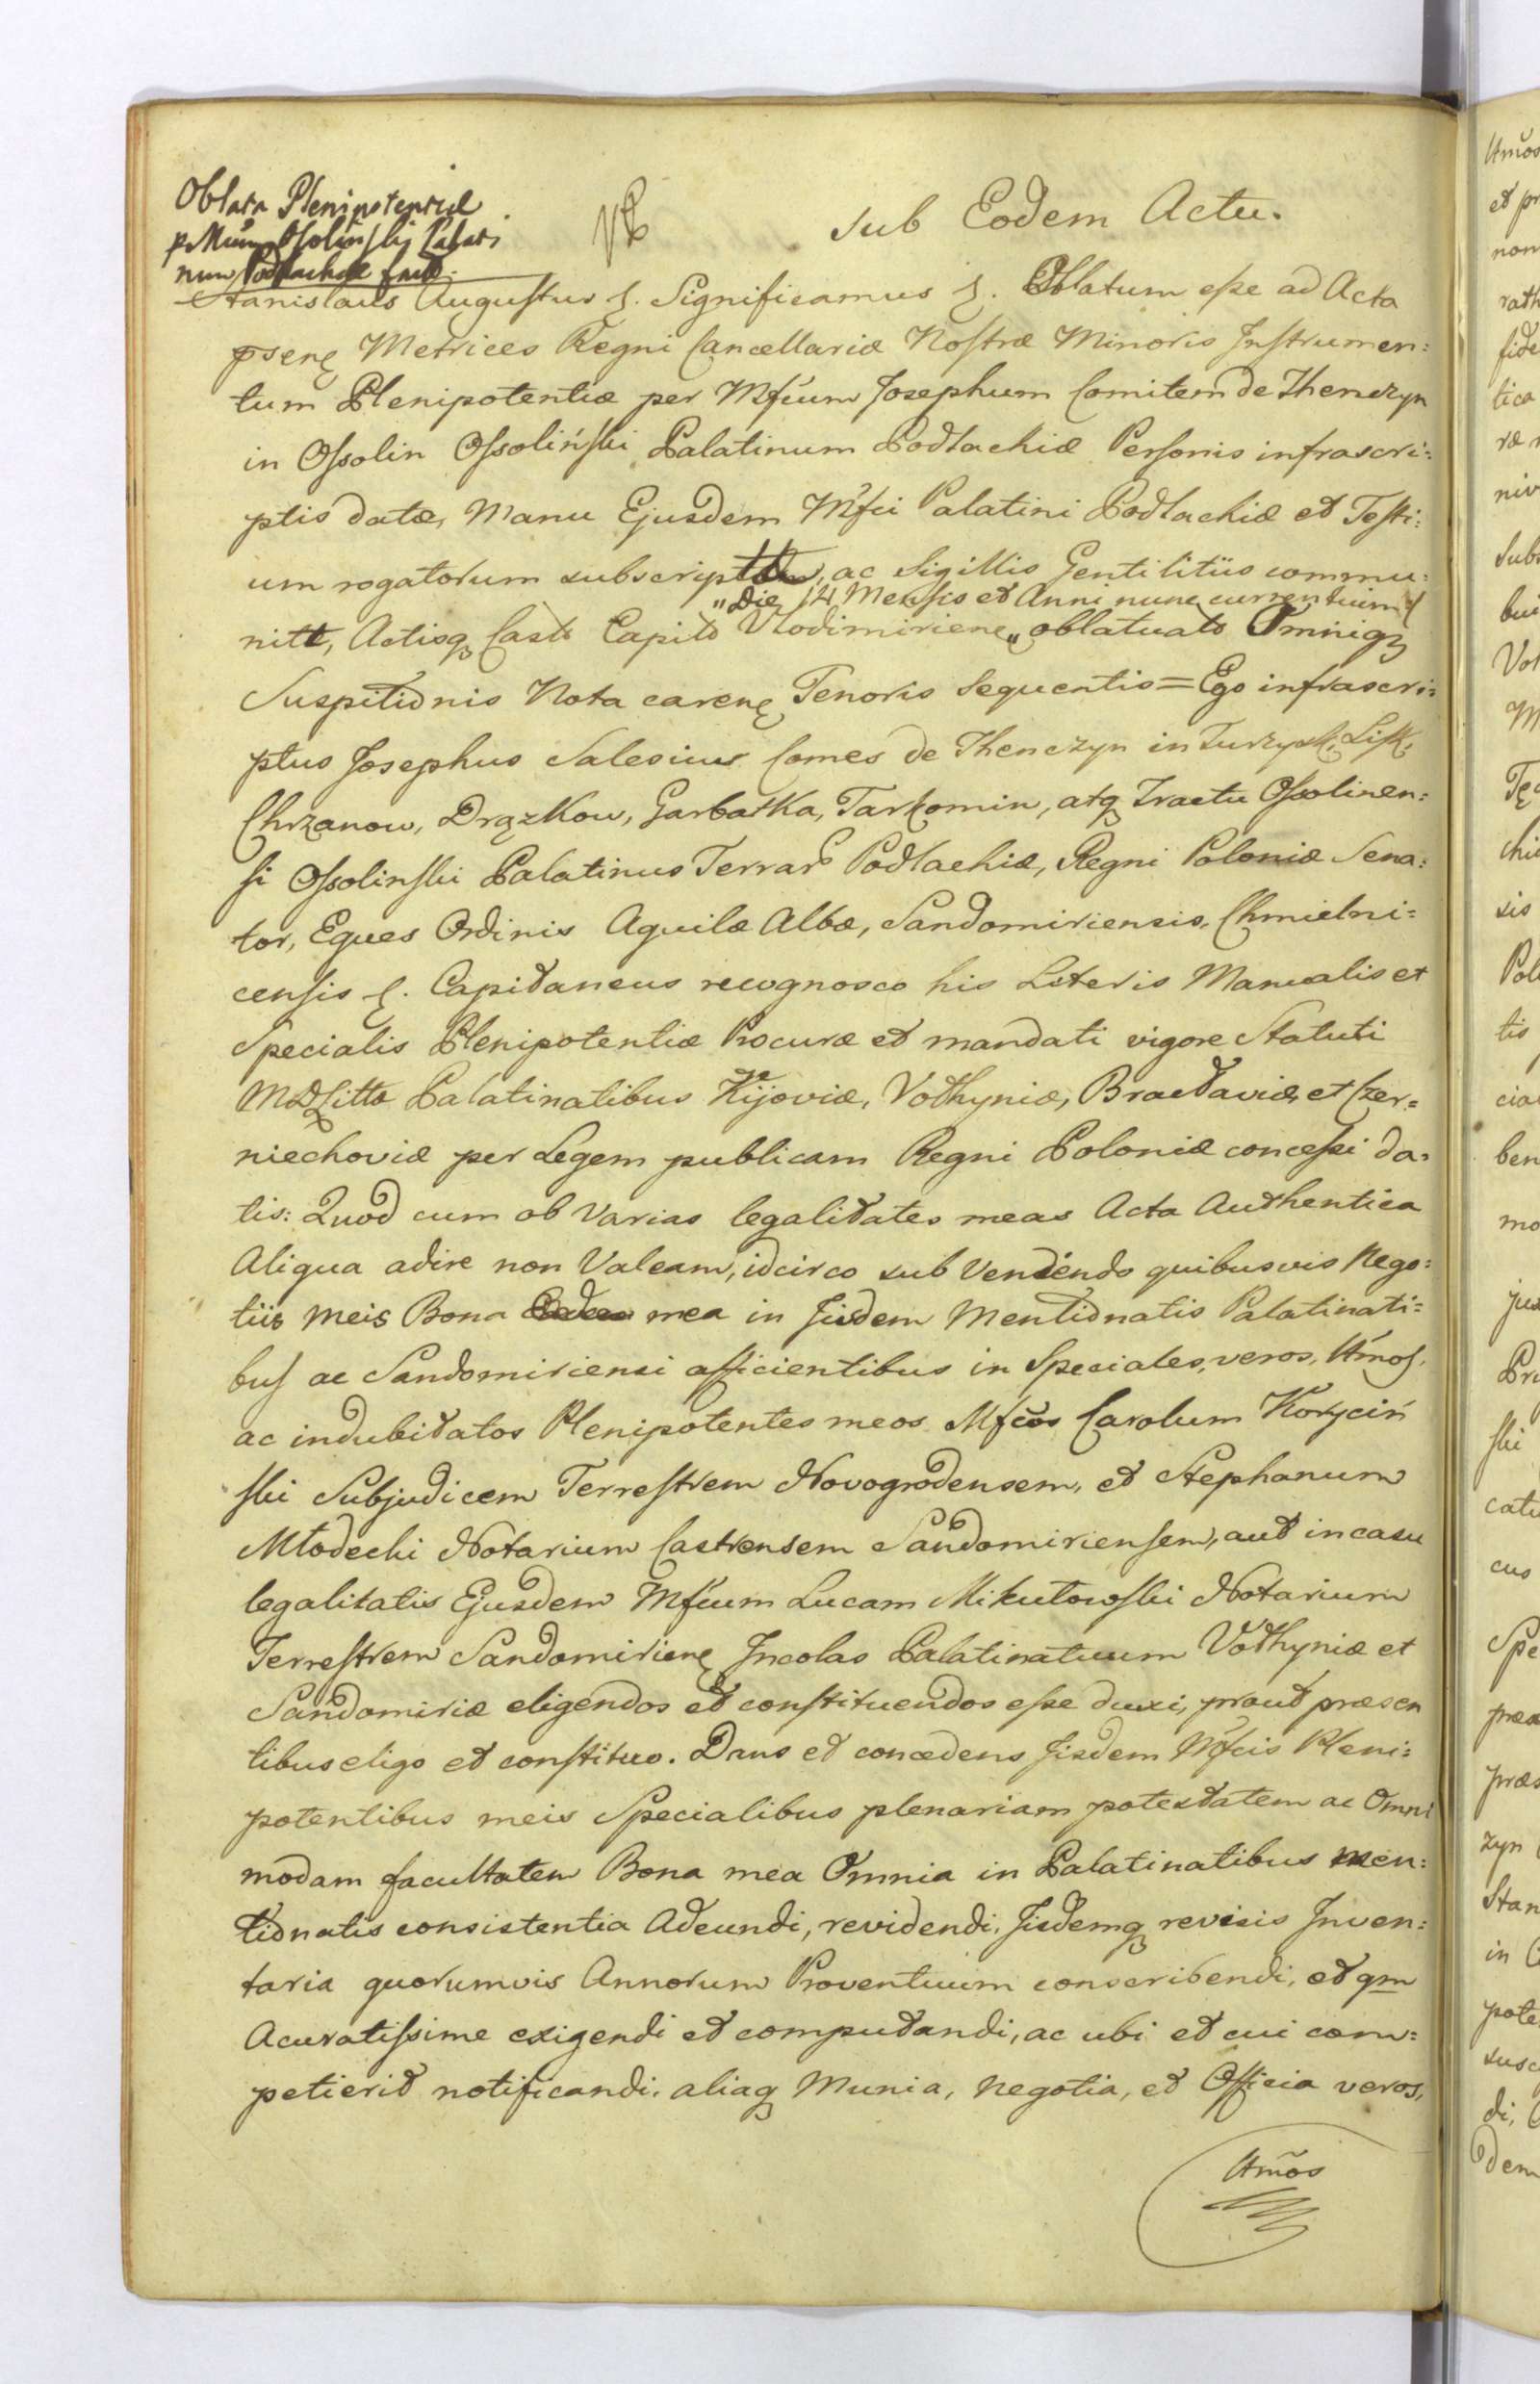 Oblata Plenipotentiæ
p. Mfcum Ossolinski Palati
num Podlachiæ factæ.
Sub Eodem Actu.
Stanislaus Augustus &. Significamus &. Oblatum esse ad Acta
psenę Metrices Regni Cancellariæ Nostræ Minoris Instrumen:
tum Plenipotentiæ per Mfcum Josephum Comitem de Thenczyn
in Ossolin Ossoliński Palatinum Podlachiæ Personis infrascri:
ptis datæ, Manu Ejusdem Mfci Palatini Podlachiæ et Testi:
um rogatorum subscriptt, ac Sigillis Gentilitiis commu:
"Die 14 Mensis et Anni nunc currentium
nitt, Actisq Castr Capitl Vlodimirienę „ oblatuatt Omniqȝ
Suspitionis Nota carenę Tenoris sequentis = Ego infrascri:
ptus Josephus Salesius Comes de Thenczyn in Turzysk, Lisk,
Chrzanow, Drązkow, Garbatka, Tarkomin, atq Tractu Ossolinen:
si Ossolinski Palatinus Terrar Podlachiæ, Regni Poloniæ Sena:
tor, Eques Ordinis Aquilæ Albæ, Sandomiriensis, Chmielni=
censis &. Capitaneus recognosco his Literis Manualis et
Specialis Plenipotentiæ Procuræ et mandati vigore Statuti
MDLittæ Palatinatibus Kijoviæ, Volhyniæ, Braclaviæ, et Czer=
niechoviæ per Legem publicam Regni Poloniæ concessi da=
tis: Quod cum ob varias legalitates meas Acta Authentica
Aliqua adire non Valeam, idcirco sub Vendendo quibusvis Nego:
tiis meis Bona mea in Iisdem Mentionatis Palatinati=
bus ac Sandomiriensi afficientibus in Speciales, veros, Ltmos,
ac indubitatos Plenipotentes meos Mfcos Carolum Koryciń
ski Subjudicem Terrestrem Novogrodensem, et Stephanum
Młodecki Notarium Castrensem Sandomiriensem, aut in casu
legalitatis Ejusdem Mfcum Lucam Mikułowski Notarium
Terrestrem Sandomirienę Incolas Palatinatuum Volhyniæ et
Sandomiriæ eligendos et constituendos esse duxi, prout præsen
tibus eligo et constituo. Dans et concedens Iisdem Mfcis Pleni:
potentibus meis Specialibus plenariam potestatem ac Omni
modam facultatem Bona mea Omnia in Palatinatibus men:
tionatis consistentia Adeundi, revidendi, Iisdemq revisis Inven:
taria quorumvis Annorum Proventuum conscribendi, et qm
Acuratissime exigendi et computandi, ac ubi et cui com=
petierit notificandi, aliaq Munia, negotia, et Officia veros,
Ltmos